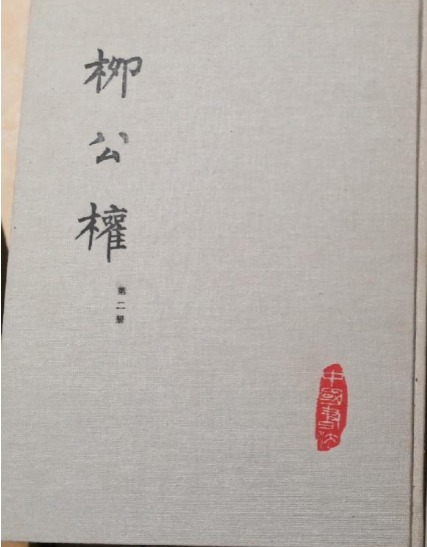 柳公權
第二册
中國書法